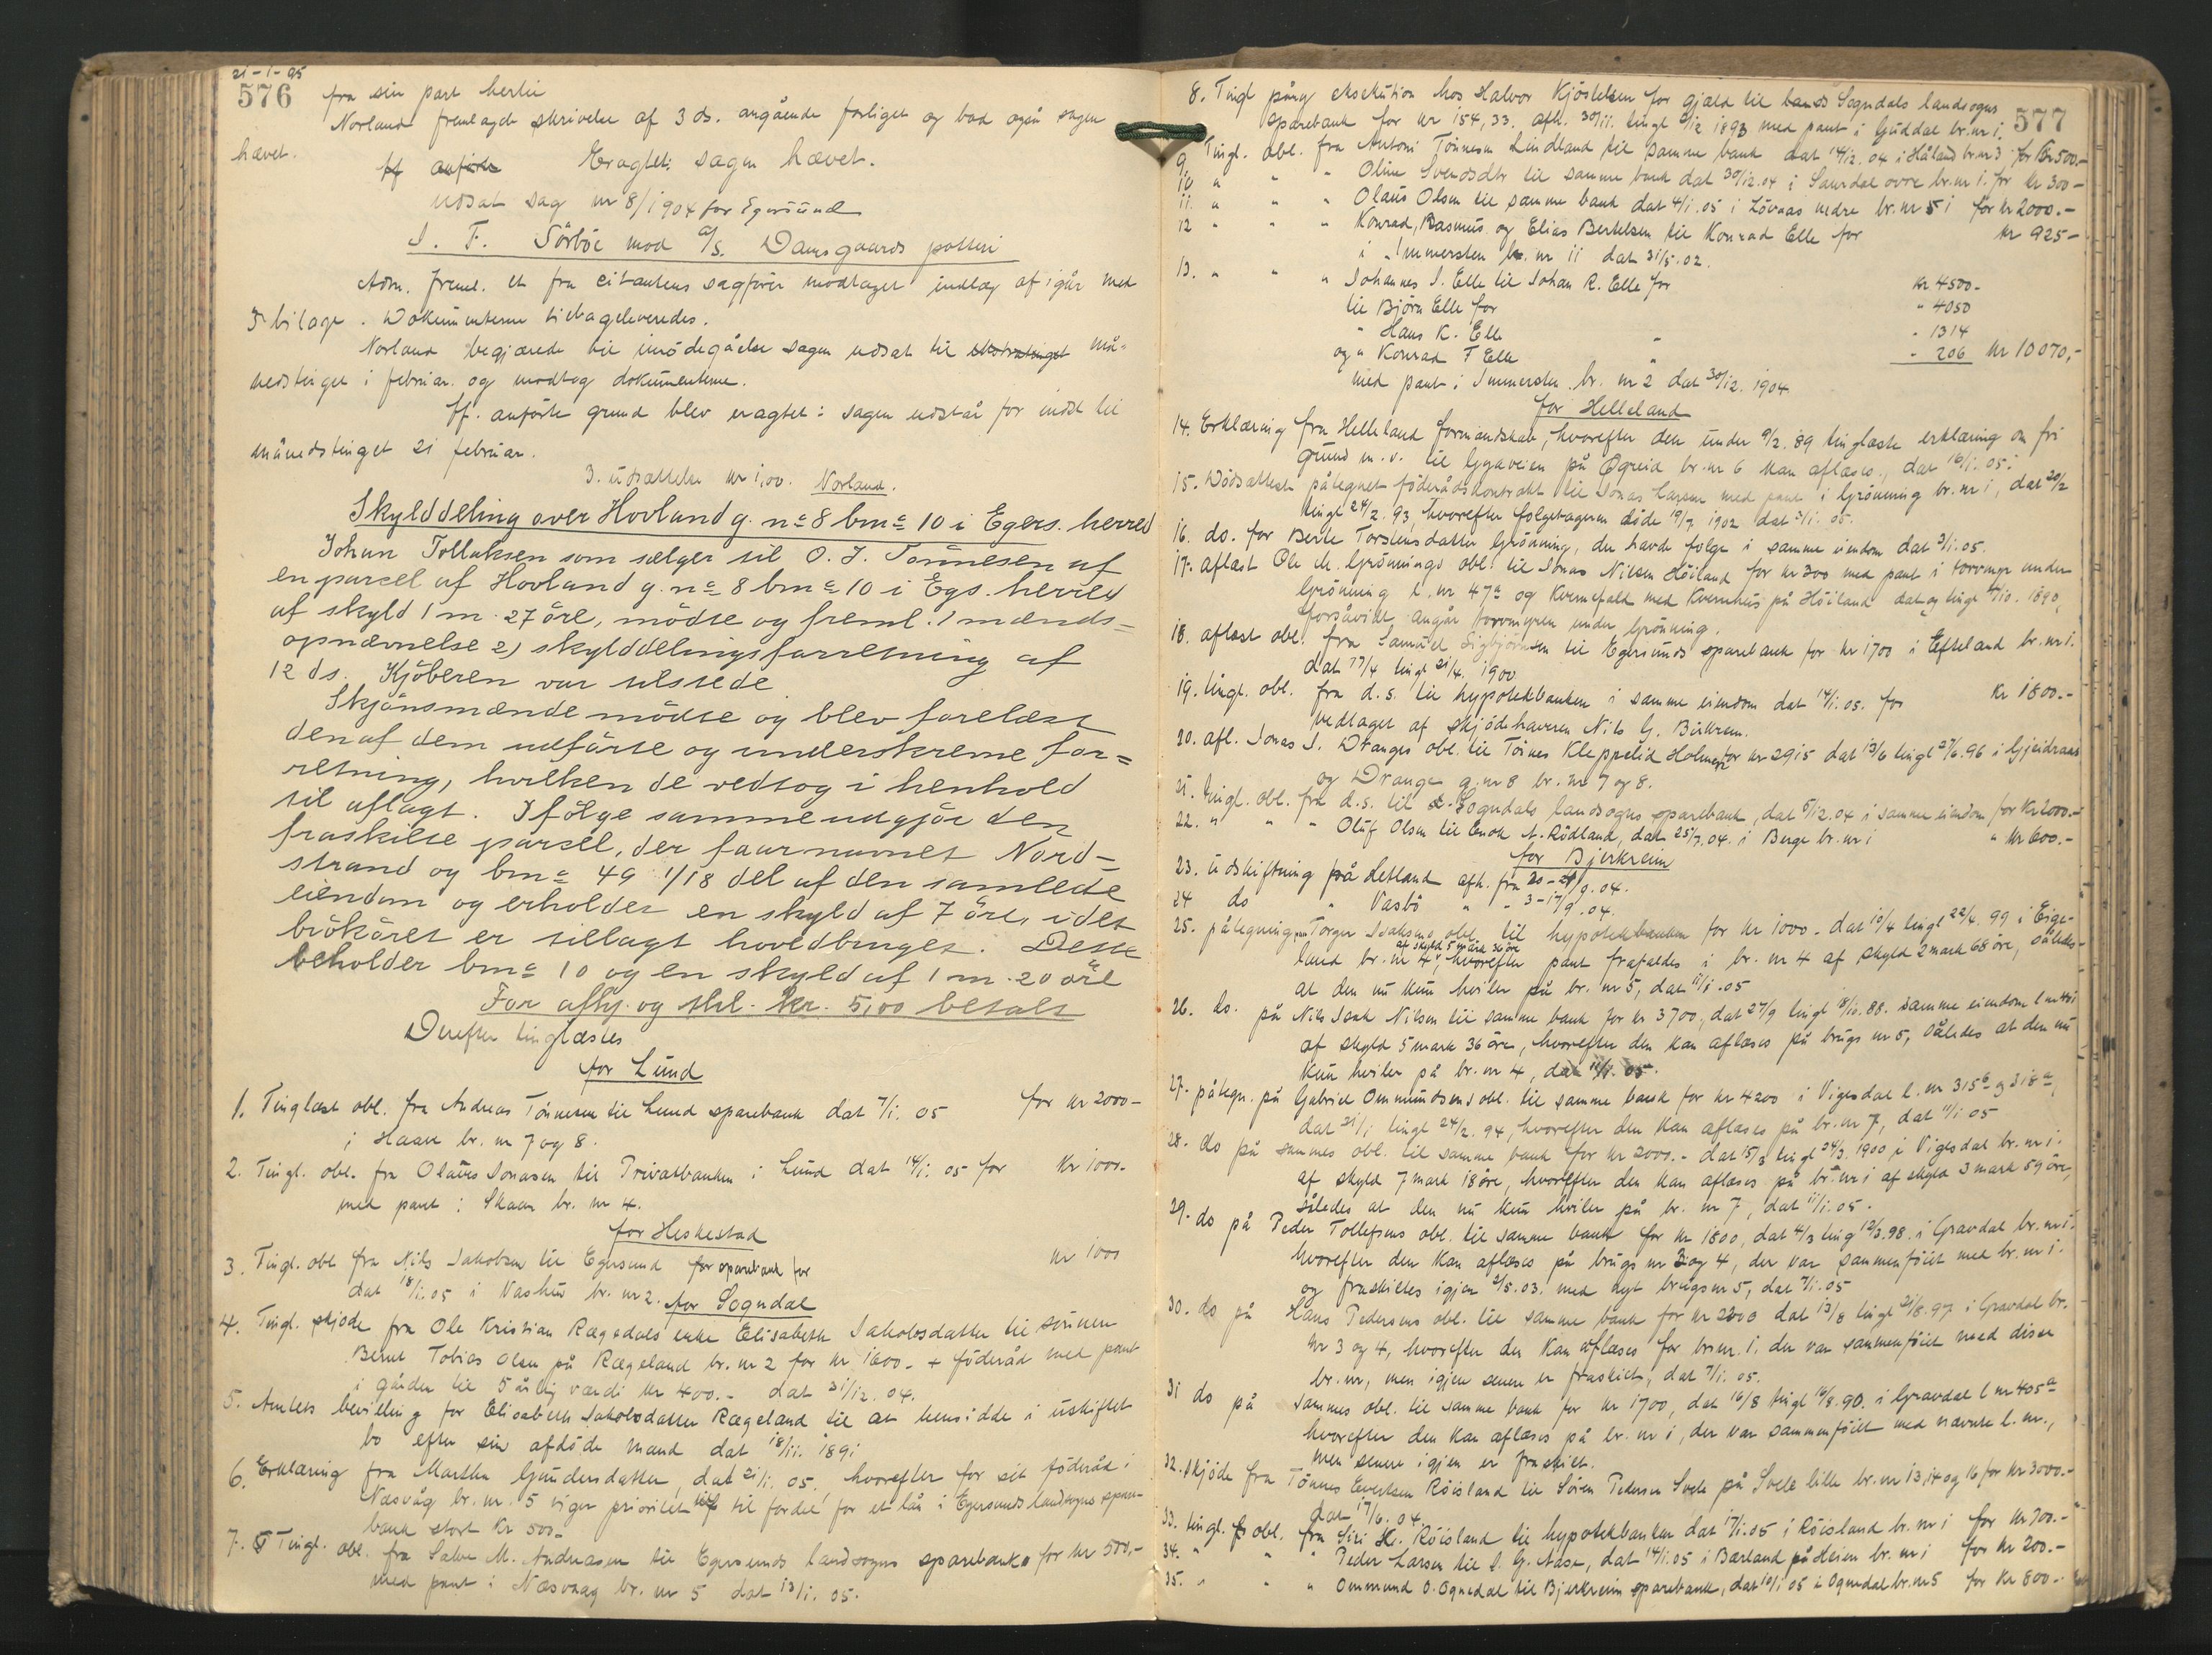 21-1-05
576
fra sin part hertil
Norland fremlagde skrivelse af 3 ds. angående forliget og bad også sagen
hævet.
ff anførte Eragtet: sagen hævet.
udsat sag nr 8/1904 for Egersund
S. F. Sörböe mod A/S. Damsgaards potteri
Adm. freml. et fra citantens sagfører modtaget indlæg af igår med
5 bilage. Dokumenterne tilbageleveredes.
Norland begjærede til imödegåelse sagen udsat til ekstratinget må-
nedstinget i februar. og modtog dokumenterne.
ff. anførte grund blev eragtet: sagen udstår for indst til
månedstinget 21 februar.
3. udsættelse kr 1,00. Norland.
Skylddeling over Hovland g. no 8 bno 10 i Egers. herred
Johan Tollaksen som sælger til O. J. Tönnesen af
en parcel af Hovland g. no 8 bno 10 i Egs. herred
af skyld 1 m. 27 öre, mödte og freml. 1 mænds-
opnævnelse 2) skylddelingsforretning af
12 ds. Kjöberen var tilstede
Skjönsmænde mödte og blev forelæst
den af dem udförte og underskrevne for-
retning, hvilken de vedtog i henhold
til aflagt. Ifölge samme udgjör den
fraskilte parcel, der faar navnet Nord-
strand og bno 49 1/18 del af den samlede
eiendom og erholder en skyld af 7 öre, idet
brököret er tillagt hovedbruget. Dette
beholder bno 10 og en skyld af 1 m. 20 öre
For afhj. og thl. kr. 5,00 betalt
Derefter tinglæstes
for Lund
1. Tinglæst obl. fra Andreas Tönnesen til Lund sparebank dat 7/1. 05 for kr 2000-
i Haave br. nr 7 og 8.
2. Tingl. obl. fra Olaus Jonasen til Privatbanken i Lund dat 14/1. 05 for Kr 1000-
med pant i Skaar br. nr 4.
for Heskestad
3. Tingl. obl fra Nils Jakobsen til Egersund for sparebank for kr 1000
dat 18/1.05 i Vashus br. nr 2. for Sogndal
4. Tingl. skjøde fra Ole Kristian Rægedals enke Elisabeth Jakobsdatter til sönnen
Bernt Tobias Olsen på Rægeland br. nr 2 for kr. 1600- + föderåd med pant
i gården til 5 årlig værdi kr 400.- dat 31/12. 04.
5. Amtets bevilling for Elisabeth Jakobsdatter Rægeland til at hensidde i uskiftet
bo efter sin afdöde mand dat 18/11. 1891
6. Erklæring fra Martha Gundersdatter, dat 21/1. 05, hvorefter for sit föderåd i
Næsvåg br. nr. 5 viger prioritet til fordel for et lån i Egersunds landsogns spare-
bank stort Kr 500-
7. Tingl. obl. fra Salve M. Andreasen til Egersunds landsogns sparebank for kr 500,-
med pant i Næsvaag br. nr 5 dat 13/1. 05.
577
8. Tingl påny eksekution hos Halvor Kjöstelsen for gjæld til lands Sogndals landsogns
sparebank for kr 154,33. afh. 30/11. tingl 2/12 1893 med pant i Guddal br. nr 1.
9. Tingl. obl. fra Antoni Tönnesen Lindland til samme bank dat 14/12. 04 i Håland br. nr 3 for Kr 500.-
10 " " " Oline Svendsdtr til samme bank dat 30/12.04 i Saurdal övre br. nr 1. for kr 300-
11. " " " Olaus Olsen til samme bank dat 4/1. 05 i Lövaas nedre br. nr 51 for kr 2000.-
12 " " " Konrad, Rasmus og Elias Bertelsen til Konrad Elle for kr 925-
i Immersten br. nr 11 dat 31/5.02.
13. " " " Johannes S. Elle til Johan R. Elle for kr 4500-
til Björn Elle for " 4050
" Hans K. Elle " " 1314
og " Konrad T Elle " " 206 kr 10070,-
med pant i Immersten br. nr 2 dat 30/12. 1904
for Helleland
14. Erklæring fra Helleland formandskab, hvorefter den under 9/2. 89 tinglæste erklæring om fri
grund m. v. til Gyaveien på Øgreid br. nr 6 kan aflæses, dat 16/1. 05.
15. Dödsattest påtegnet föderådskontrakt til Jonas Larsen med pant i Grönning br. nr 1, dat 20/2
tingl 24/2. 93, hvorefter folgetageren döde 19/7 1902 dat 3/1. 05.
16. do. for Berte Torstensdatter Grönning, der havde folge i samme eiendom dat 3/1. 05.
17. aflæst Ole de. Grönnings obl. til Jonas Nilsen Höiland for kr 300 med pant i torvmyr under
Grönning l. nr 47a og Kvernefald med Kvernhus på Höiland dat og tingl 4/10. 1890,
forsåvidt angår torvmyren under Grönning.
18. aflæst obl. fra Samuel Sigbjörnsen til Egersunds sparebank for kr 1700 i Efteland br. nr 1.
dat 17/4 tingl 21/4. 1900
19. tingl. obl. fra d. s. til hypotekbanken i samme eiendom dat 14/1. 05. for Kr 1800.-
vedtaget af skjödehaveren Nils G. Birkrem.
20. afl. Jonas J. Dranges obl. til Töines Kleppelid Holmen for kr 2915 dat 13/6 tingl 27/6. 96 i Gjeidraas
og Drange g. nr 8 br. nr 7 og 8.
21. tingl. obl. fra d. s. til Sogndals landsogns sparebank, dat 5/12. 04 i samme eiendom for Kr 2000.-
22. " " " Oluf Olsen til Enok A. Rödland, dat 25/7. 04. i Berge br. nr 1 " kr 600.-
for Bjerkreim
23. udskiftning på Letland afh. fra 20-21/9. 04.
24 do " Vasbö " " 3-17/9. 04.
25. påtegning om Torger Isaksens obl. til hypotekbanken for kr 1000- dat 10/4 tingl 22/4. 99 i Eige-
af skyld 5 mark 36 öre
land br. nr 4, hvorefter pant frafaldes i br. nr 4 af skyld 2 mark 68 öre, således
at den nu kun hviler på br. nr 5, dat 11/1. 05
26. do. på Nils Isak Nilsen til samme bank for kr 3700, dat 27/9 tingl 18/10. 88. samme eiendom
af skyld 5 mark 36 öre, hvorefter den kan aflæses på brugs nr 5, således at den nu
kun hviler på br. nr 4, dat 11/1. 05.
27. påtegn. på Gabriel Ommundsens obl. til samme bank for kr 4200 i Vigesdal l. nr 315b og 318a,
dat 31/1 tingl 24/2. 94, hvorefter den kan aflæses på br. nr 7, dat 11/1 05
28. do på sammes obl. til samme bank for kr 2000.- dat 15/3 tingl 24/3. 1900 i Vigesdal br. nr 1.
af skyld 7 mark 18 öre, hvorefter den kan aflæses på br. nr 1 af skyld 3 mark 59 öre,
således at den nu kun hviler på br. nr 7, dat 11/1. 05.
29. do på Peder Tollefsens obl. til samme bank for kr 1800, dat 4/3 tingl 12/3. 98. i Gravdal br. nr 1.
hvorefter den kan aflæses på brugs nr 3 og 4, der var sammenföiet med br. nr 1.
og fraskiltes igjen 2/5. 03. med nyt brugsnr 5, dat 7/1. 05
30. do på Hans Pedersens obl. til samme bank for kr 2200 dat 13/8 tingl 21/8. 97 i Gravdal br.
nr 3 og 4, hvorefter den kan aflæses for br. nr. 1. der var sammenföiet med disse
br. nr, men igjen senere er fraskilt, dat 7/1. 05.
31 do på Sammes obl. til samme bank for kr 1700, dat 16/8 tingl 16/8. 90. i Gravdal l nr 405a
hvorefter den kan aflæses på br. nr 1, der var sammenföiet med nævnte l. nr.,
men senere igjen er fraskilt.
32. skjöde fra Tönnes Evertsen Röisland til Sören Pedersen Svele på Svele lille br. nr 13, 14 og 16 for kr 3000.-
dat 17/6. 04.
33. tingl. obl. fra Siri Röisland til hypotekbanken dat 17/1. 05 i Röisland br. nr 1 for kr 700.-
34. " " " Peder Larsen til S. G. Aase, dat 14/1. 05 i Bærland på Heien br. nr 1 for kr 200.-
35. " " " Ommund O. Ognedal til Bjerkreim sparebank, dat 10/1 05 i Ognedal br. nr 5 for Kr 800-